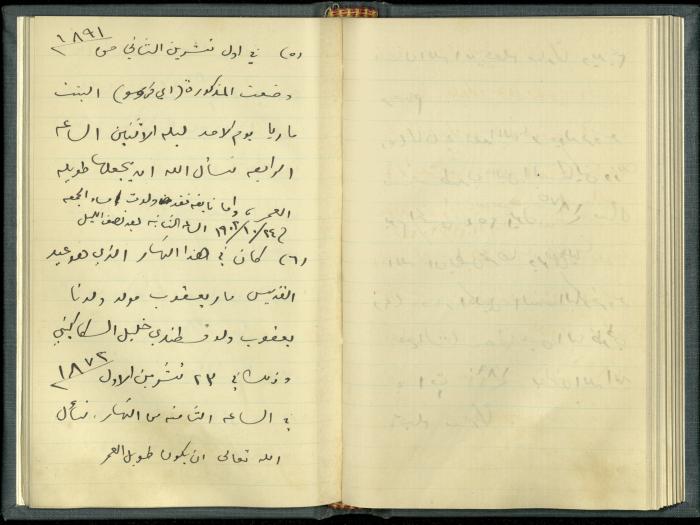 (٥) في اول تشرين الثاني من ١٨٩١
وضعت المذكورة (امي) البنت
ماريا يوم الاحد ليلة الاثنين الساعه
الرابعه نسأل الله ان يجعلها طويله
العمر، واما فقد ولدت مساء الجمعه
في ١٩٠٢/١٠/٢٤ الساعه الثانيه بعد نصف الليل
(٦) كان في هذا النهار الذي هو عيد
القديس مار يعقوب مولد ولدنا
يعقوب ولد قسطندي خليل السكاكيني
وذلك في ٢٣ تشرين الاول ١٨٧٢
في الساعه الثامنه من النهار، نسأل
الله تعالى ان يكون طويل العمر